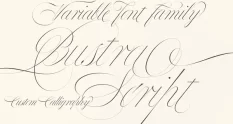 Variable Font family
Bustrac
Script
Custom Calligraphy